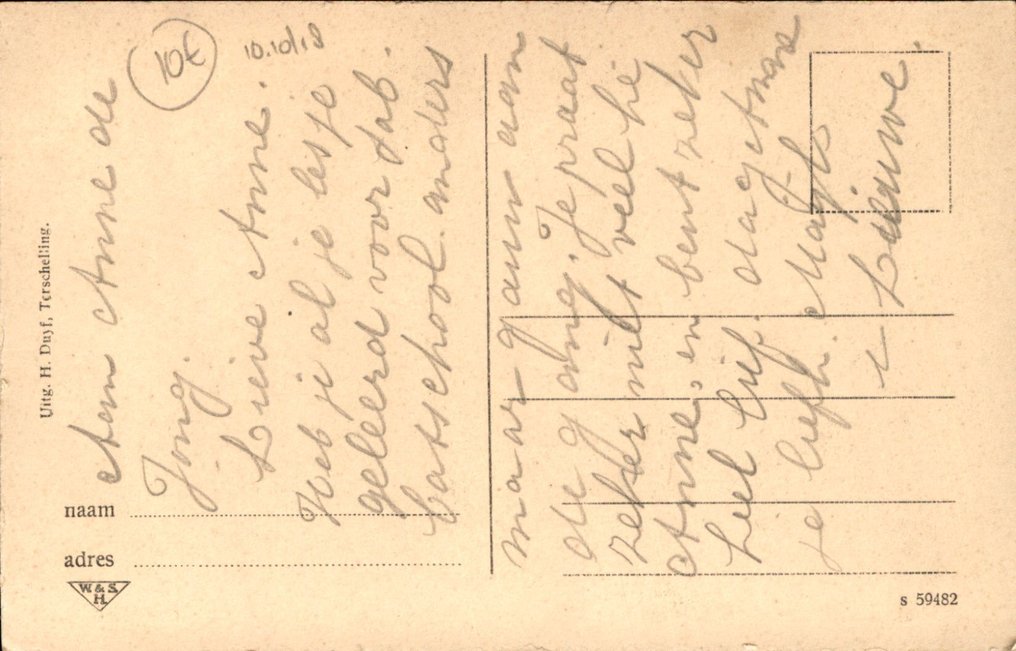 10€
10.10/18
Aan Anne de
Jong.
Lieve Anne.
Heb je al je lesje
geleerd voor
school anders
maar gaun aan
de gang. Je praat
zeker niet veel he
Anne, en bent zeker
heel lief. dag Anna
je liefh.
Lieuwe.
Uitg. H. Duyf, Terschelling.
naam
adres
W & S.
H.
s 59482